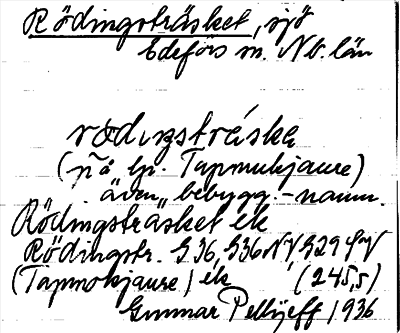 Rödingsträsket, sjö
Edefors sn. Nb. län
rödıŋstráska
(på lp. Tapmukjaure)
även bebygg.-namn.
Rödingsträsket ek
Rödingstr. G 36, G36NV, G29 SV
(Tapmokjaure) ek (245,5)
Gunnar Pellijeff 1936